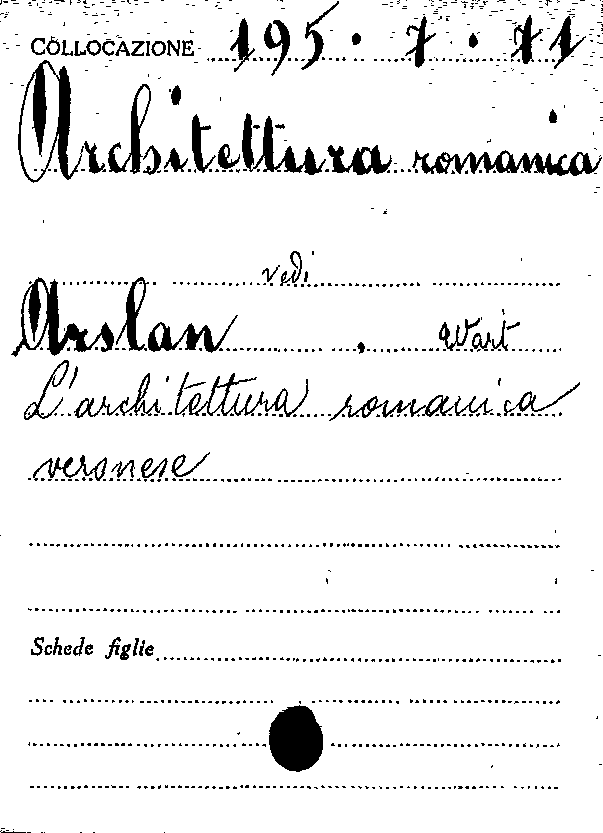 COLLOCAZIONE 195.7.71
Architettura romanica
vedi
Arslan, Wart
L'architettura romanica
veronese
Schede figlie